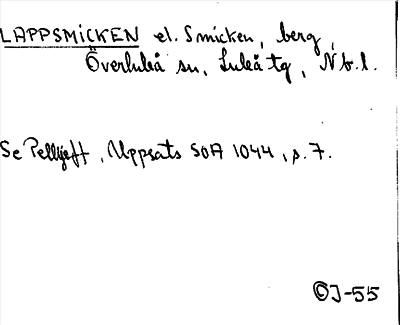 LAPPSMICKEN el. Smicken, berg,
Överluleå sn, Luleå tg, Nb. l.
Se Pellijeff, Uppsats SOA 1044, s. 7.
ⒸJ-55